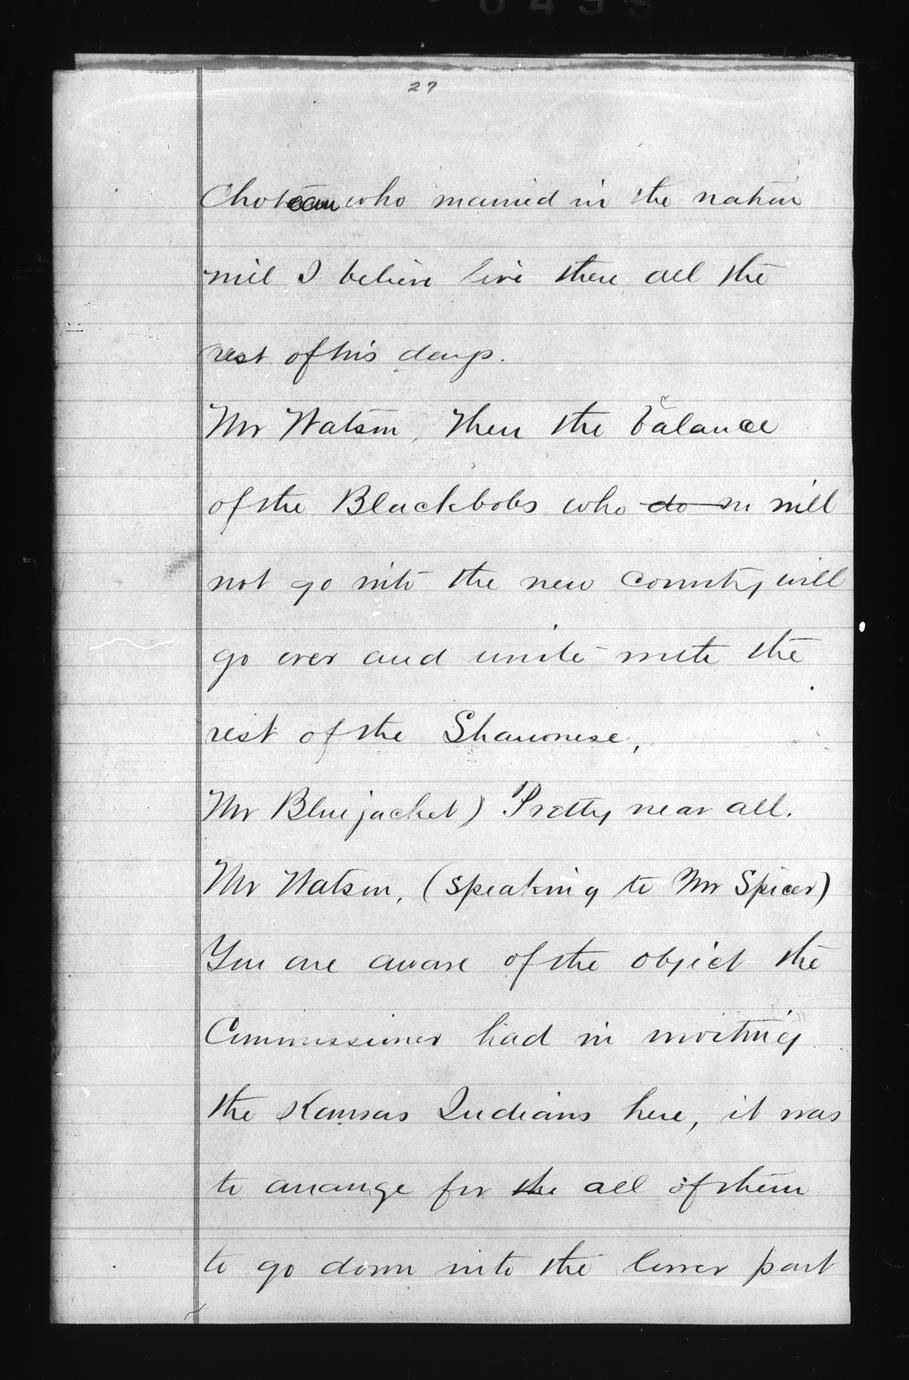 27
Choteau who married in the nation
will I believe live there all the
rest of his days.
Mr Watson, Then the balance
of the Blackbobs who do in will
not go into the new country will
go over and unite with the
rest of the Shawnese,
Mr Bluejacket) Pretty near all.
Mr Watson, (speaking to Mr Spicer)
You are aware of the object the
Commissioner had in inviting
the Kansas Indians here, it was
to arrange for the all of them
to go down into the lower part